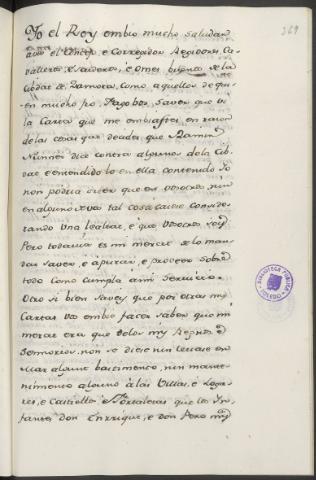 269
Yo el Rey embio mucho saludar
a vos el Concejo e Corregidor Regidores, Ca-
valleros, escuderos, e omes buenos de la
Cibdat de Zamora, como aquellos de qui-
en mucho fio. Fagovos saver que vi
la Carta que me embiastes en razon
delas cosas que decides que Ramir
Nunnez dice contra algunos dela Cib-
dat e entendido lo en ella contenido Yo
non podria creer que en vosotros nin
en alguno de vos tal cosa cabe conside-
rando una lealtat, e que vosotros soys
Pero todavia es mi merced de lo man-
dar saver, e apurar, e proveer sobre
todo como cumpla a mi servicio.
Otro si bien savey que por otras my
Cartas vos embie facer saber que mi
merced era que delos mys Regnos e
Sennorios, non se diese nin levase en
Mar algunt bastimento, nin mante-
nimiento alguno à las Villas, e Loga-
res, e Castiellos e Fortalezas que los In-
fantes don Enrrique, e don Pero mys
BIBLIOTECA PUBLICA
TOLEDO